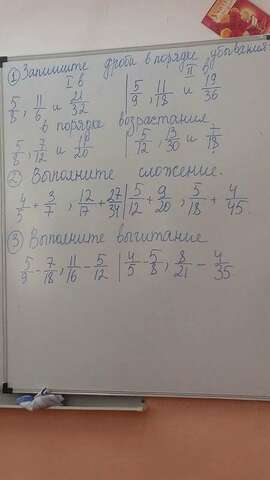 ① Запишите дроби в порядке убывания
I в II в
5/8, 11/6 и 21/32 5/9, 11/18 и 19/36
в порядке возрастание
5/8, 7/12 и 11/20 5/12, 13/30 и 7/18
② Выполните сложение.
4/5 + 3/7, 12/17 + 27/34 | 5/12 + 9/20, 5/18 + 4/45.
③ Выполните вычитание
5/9 - 7/18, 11/16 - 5/12 | 4/5 - 5/8, 8/21 - 4/35.